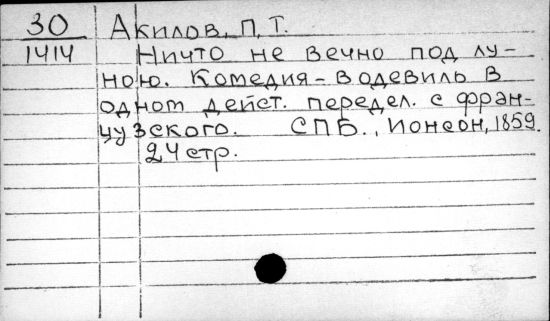 30 Акилов, П. Т.
1414 Ничто не вечно под лу-
ною. Комедия-водевиль в
одном дейст. передел. с фран-
цузского. СПБ., Ионсон, 1859.
24 стр.